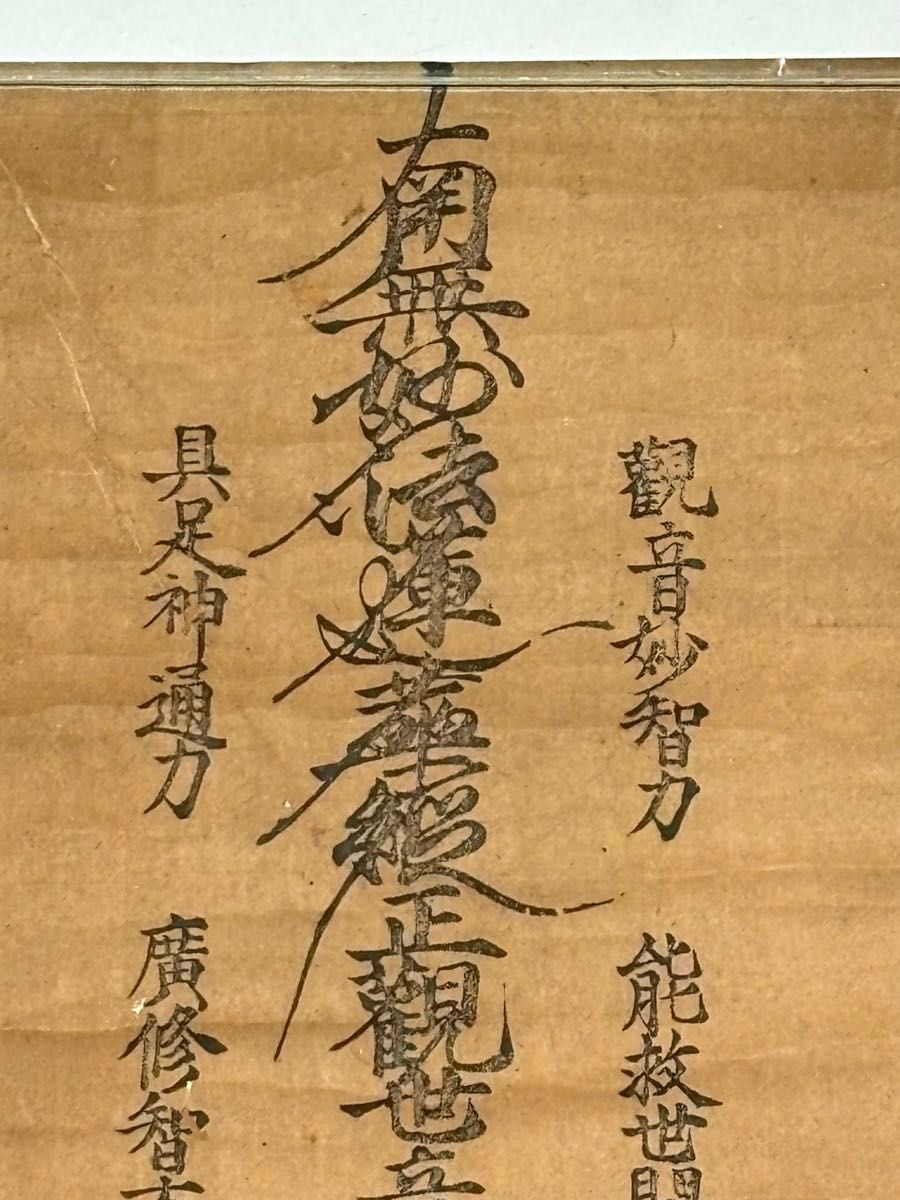 觀音妙智力
能救世間
南無妙法蓮華經正觀世音
具足神通力
廣修智方